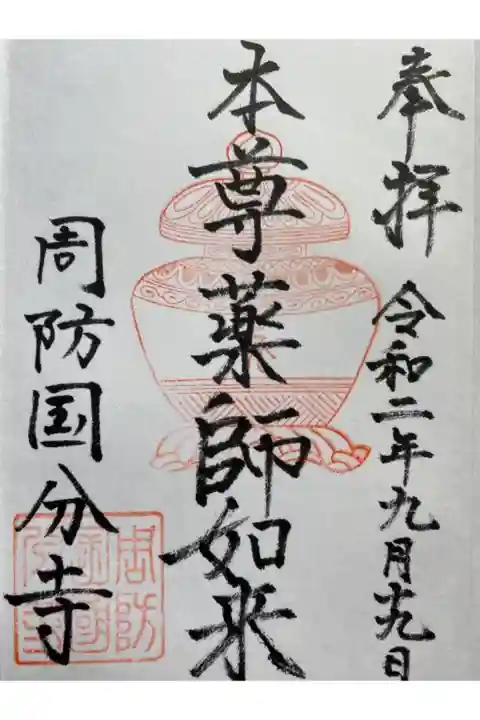 奉拝 令和二年九月十九日
本尊薬師如来
周防国分寺
周防国分寺